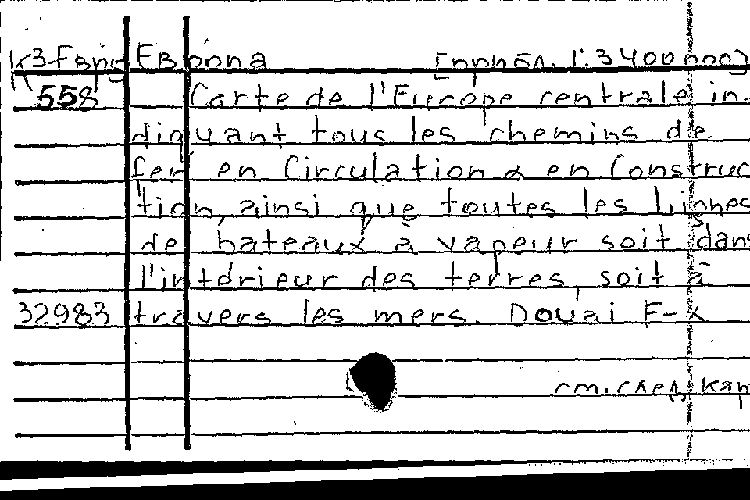 К3-Евр Европа [прибл. 1:3400000]
558 Carte de l'Europe centrale in-
diquant tous les chemins de
fer en Circulation & en Construc
tion, ainsi que toutes les Lignes
de bateaux à vapeur soit dans
l'intérieur des terres, soit à
32983 travers les mers. Douai F-x
см. след. кар